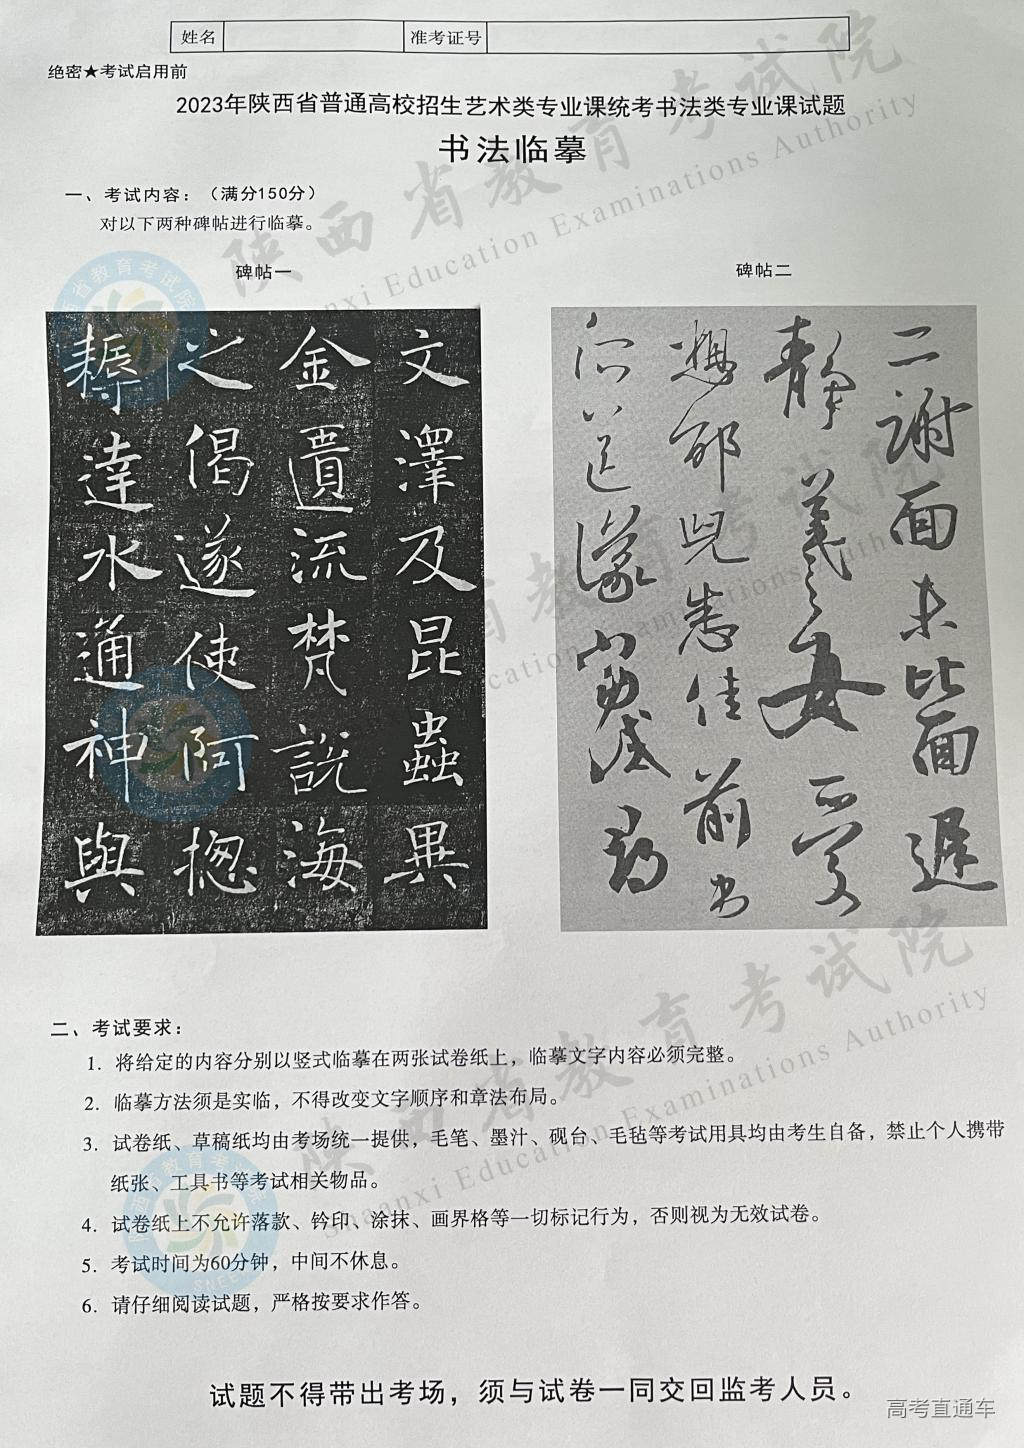 姓名 准考证号
绝密★考试启用前
2023年陕西省普通高校招生艺术类专业课统考书法类专业课试题
书法临摹
一、考试内容：（满分150分）
对以下两种碑帖进行临摹。
碑帖一
文澤及昆蟲異
金匱流梵説海
之偈遂使阿揔
耨達水通神與
碑帖二
二謝面未比面遲
静羲之女愛
想邰兒悉佳前
所送議當
二、考试要求：
1. 将给定的内容分别以竖式临摹在两张试卷纸上，临摹文字内容必须完整。
2. 临摹方法须是实临，不得改变文字顺序和章法布局。
3. 试卷纸、草稿纸均由考场统一提供，毛笔、墨汁、砚台、毛毡等考试用具均由考生自备，禁止个人携带
纸张、工具书等考试相关物品。
4. 试卷纸上不允许落款、钤印、涂抹、画界格等一切标记行为，否则视为无效试卷。
5. 考试时间为60分钟，中间不休息。
6. 请仔细阅读试题，严格按要求作答。
试题不得带出考场，须与试卷一同交回监考人员。
高考直通车
陕西省教育考试院
Shaanxi Education Examinations Authority